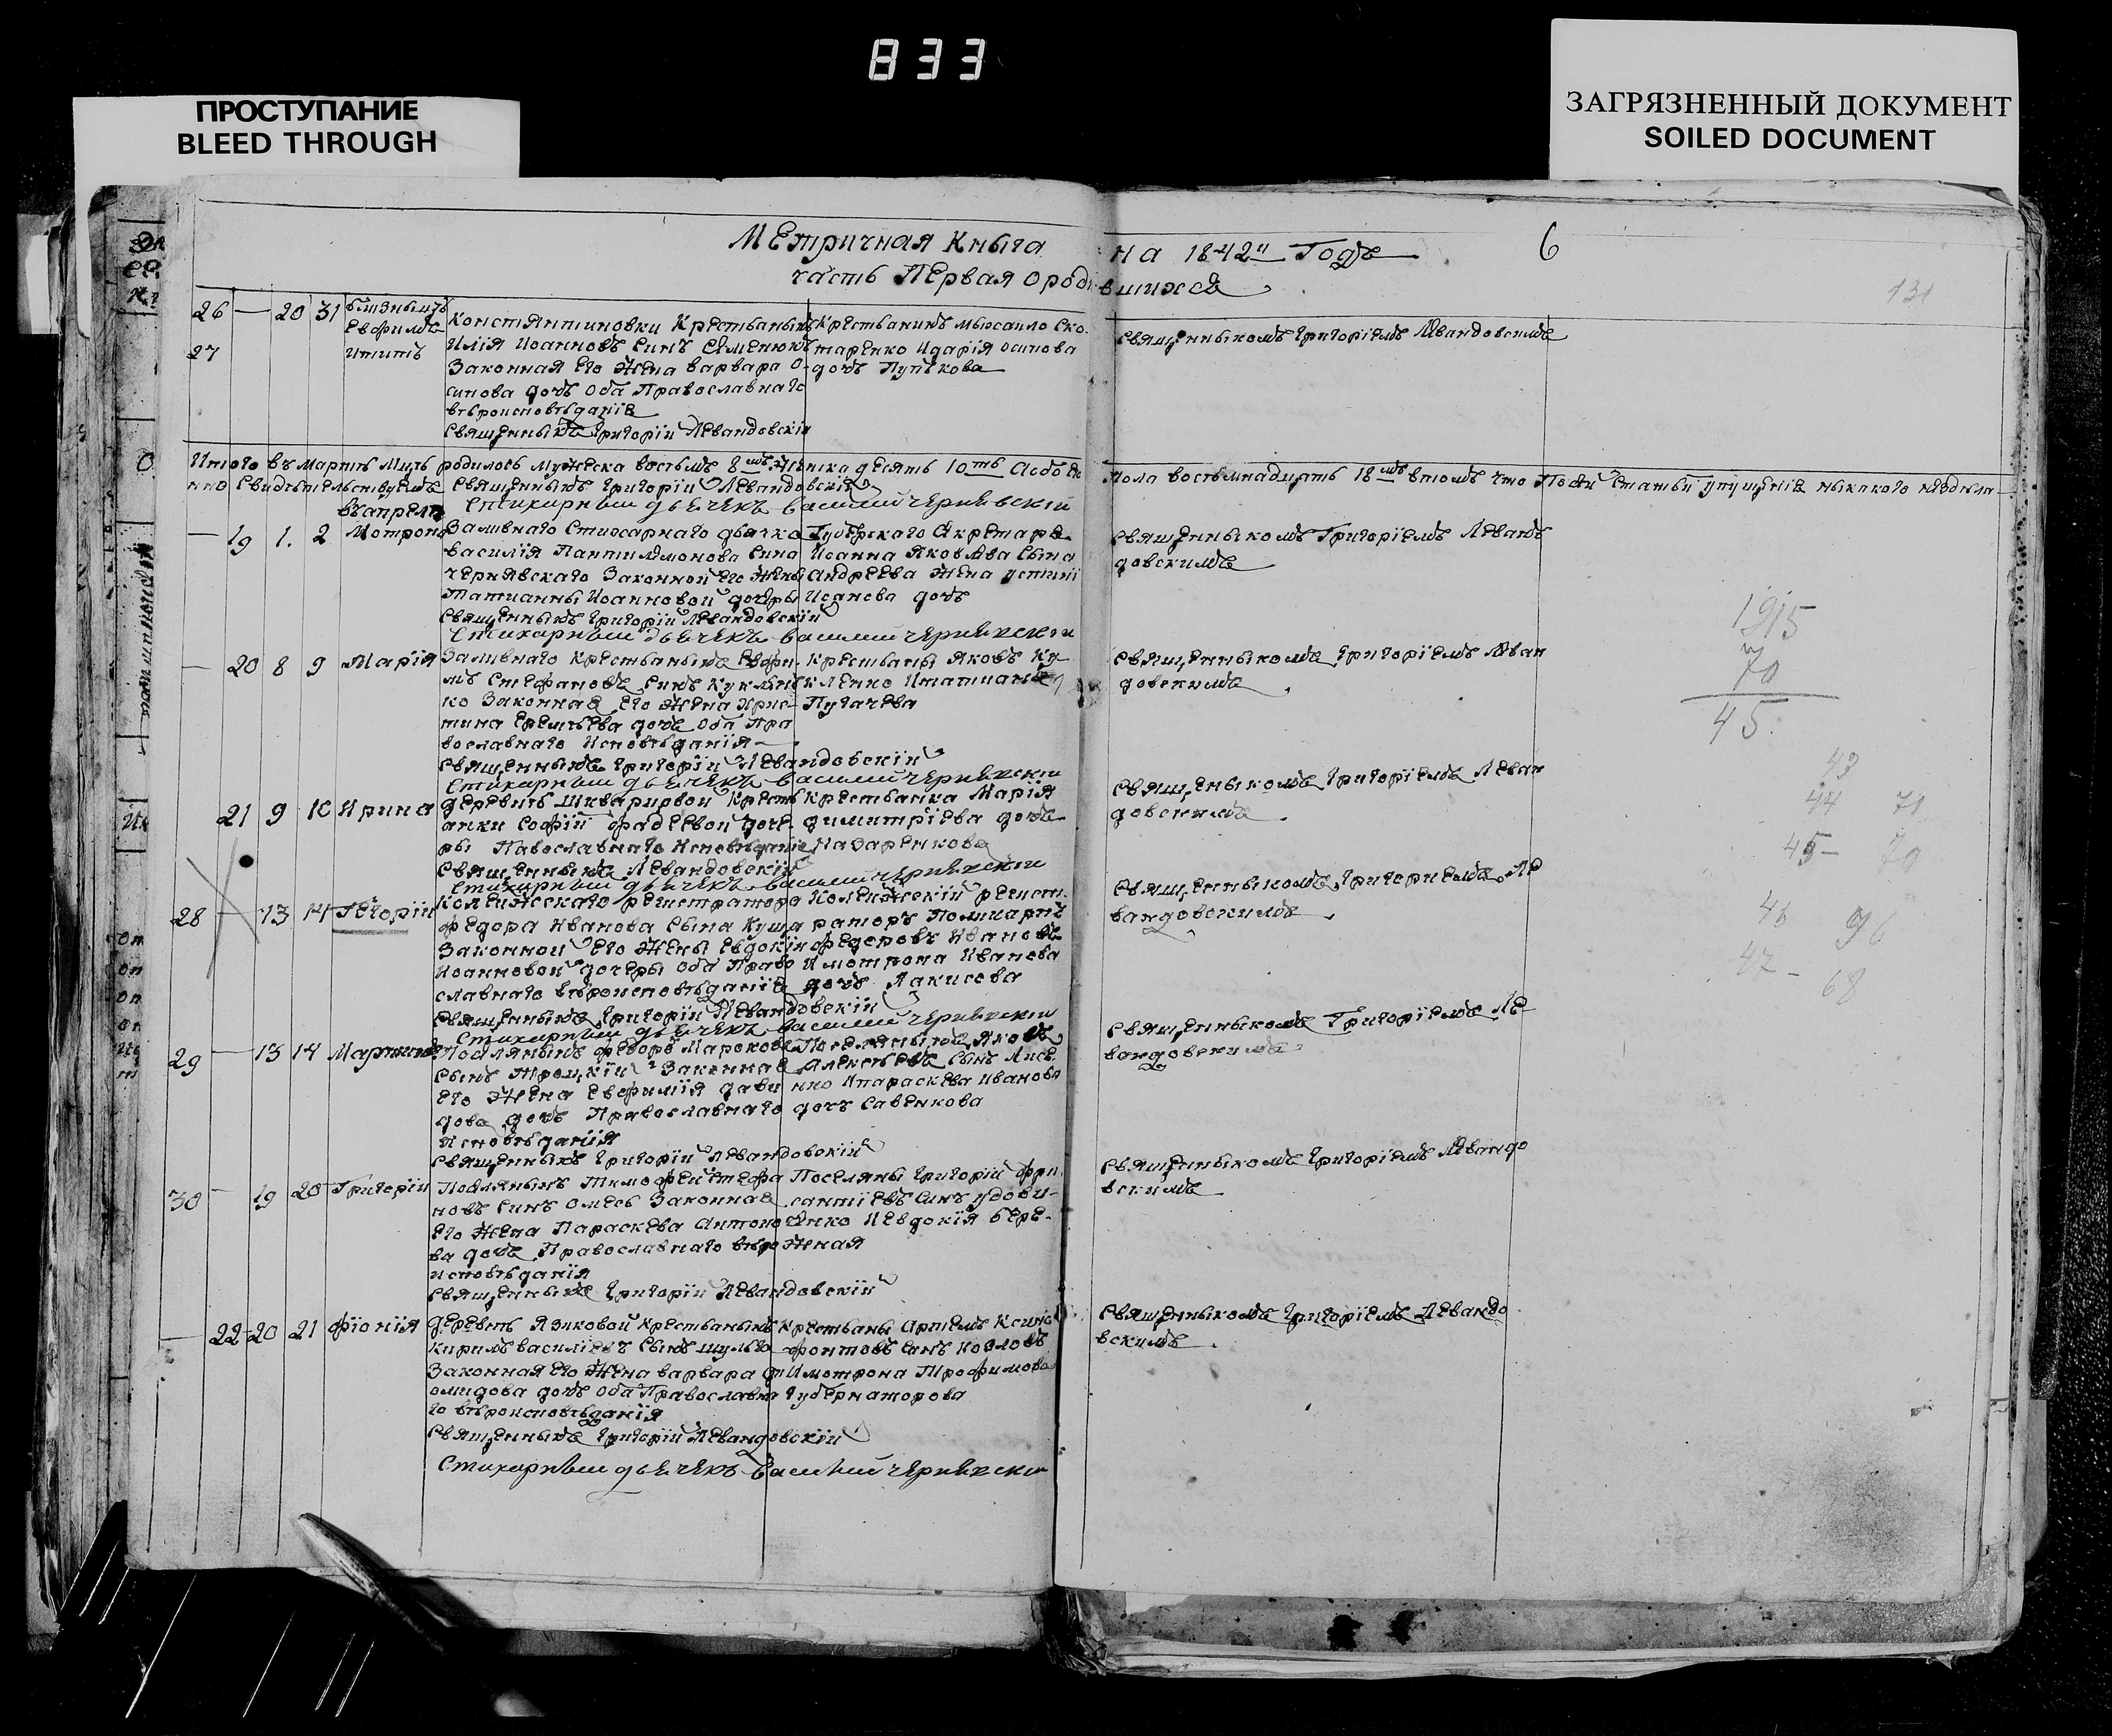 833
ПРОСТУПАНИЕ
BLEED THROUGH
ЗАГРЯЗНЕННЫЙ ДОКУМЕНТ
SOILED DOCUMENT
МЕтричная Кныга на 1842й Годъ
6
часть ПЕрвая о родившихся
131
26 — 20 31 близнецъ
27 Евфимъ
и титъ
Константиновки Крестьянинъ
Илія Иоанновъ синъ СЕменюкъ
Законная Его Жена варвара О-
сипова дочь оба Православнаго
вѣроисповѣданія
Священныкъ Григорій ЛЕвандовскій
Крестьянинъ Мыхаило Ско-
таренко И дарія осипова
дочь Пупькова
Священныкомъ Григоріемъ Левандовскимъ
Итого въ Мартѣ М-цѣ родилось мужеска восемъ 8мъ женска десять 10ть Обоего
пола восемьнадцать 18ть в томъ что По сей Статьи упущения ныкакого нездела-
нно свидѣтельствуемъ Священныкъ Григорій ЛЕвандовскій
Стихарный дьячекъ василий чернявский
въ апрелѣ
— 19 1. 2 Мотрона
Заливнаго Стихарнаго дьячка
василія Пантилимонова Сина
чернявскаго Законной Его Жены
Татианны Иоанновой дочери
Священныкъ Григорій ЛЕвандовскій
Стихарный дьячекъ василий чернявский
Губерскаго Секретаря
Иоанна Яковлева Сына
Андреева Жена устинія
Исаиева дочь
Священныкомъ Григоріемъ Леван
довскимъ
1915
70
45
— 20 8 9 Марія
Заливнаго Крестьянинъ Евфи-
мъ Стефановъ синъ Куклен
ко Законная Его Жена Хрис-
тина Еремѣева дочь оба Пра
вославнаго Исповѣданія
Священныкъ Григорій ЛЕвандовскій
Стихарный дьячекъ василий чернявский
Крестьяны Яковъ Ку-
кленко И татиана
Пугачева
Священныкомъ Григоріемъ Леван
довскимъ
— 21 9 10 Ирина
деревнѣ Шкваривой Кресть
анки Софіи фадеевой доче
ры Павославнаго Исповѣданія
Священныкъ ЛЕвандовскій
Стихарный дьячекъ василий чернявский
Крестьянка Марія
димитріева дочь
Назаренкова
Священыкомъ Григоріемъ Леван
довскимъ
43
44 71
45 — 79
46 96
47 — 68
28 — 13 14 ГЕоргій
КолЕжескаго регистратора
Федора Иванова Сына Куща
Законной Его Жены Евдокіи
Иоанновой дочеры оба Право
славнаго вѣроисповѣданія
Священныкъ Григорій ЛЕвандовскій
Стихарный дьячекъ василий чернявский
Колежескій регист-
раторъ Поликарпъ
Федоровъ Ивановъ
И мотрона Иванова
дочь Лакисова
Священныкомъ Григориемъ Ле
вандовскимъ
29 — 13 14 Мартинъ
Поселянынъ Феодоръ Марковъ
Сынъ Троцкій Законная
Его Жена Евфимія дави
дова дочь Православнаго
Исповѣданія
Священныкъ Григорій ЛЕвандовскій
Поселянынъ Яковъ
Алексѣевъ Сынъ Лисе
нко И параскева Иванова
дочь Савенкова
Священныкомъ Григоріемъ Ле
вандовскимъ
30 — 19 20 Григорій
Поселянынъ Тимофей Стефа
новъ синъ Омесь Законная
Его Жена Параскева Антоно
ва дочь Православнаго вѣро
исповѣданія
Священныкъ Григорій ЛЕвандовскій
Поселяны Григорій фри
сантіевъ синъ удови-
енко И Евдокія бере-
жная
Священныкомъ Григоріемъ Левандо
вскимъ
— 22 20 21 Фіонія
деревнѣ Язиковой Крестьянынъ
Кирилъ василіевъ Сынъ Шульга
Законная Его Жена варвара ди
омидова дочь оба Православна
го вѣроисповѣданія
Священныкъ Григорій ЛЕвандовскій
Стихарный дьячекъ василий чернявский
Крестьяны Артемъ Ксино
фонтовъ синъ Козловъ
И мотрона Трофимова
Губернаторова
Священныкомъ Григоріемъ Левандо
вскимъ